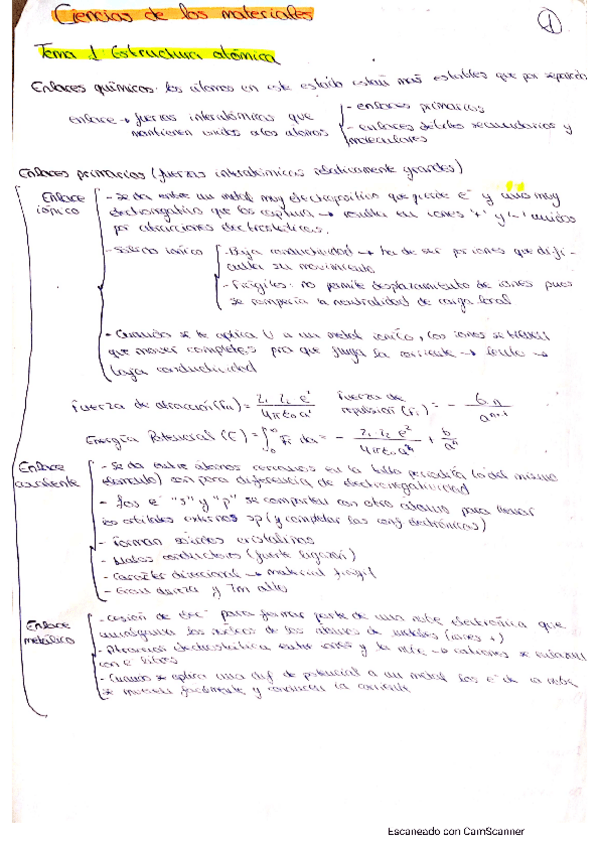 Ciencias de los materiales
1
Tema 1: Estructura atómica
Enlaces químicos: los átomos en este estado están más estables que por separado
enlace → fuerzas interatómicas que mantienen unidos a los átomos
- enlaces primarios
- enlaces débiles secundarios y moleculares
Enlaces primarios (fuerzas interatómicas relativamente grandes)
Enlace iónico
- Se da entre un metal muy electropositivo que pierde e⁻ y uno muy
electronegativo que los captura → resulta en iones '+' y '-' unidos
por atracciones electrostáticas.
- Sólido iónico
- Baja conductividad → ha de ser por iones que difi-
culta su movimiento
- Frágiles: no permite desplazamiento de iones pues
se rompería la neutralidad de carga local
- Cuando se le aplica U a un metal iónico, los iones se tienen
que mover completos, pra que fluya la corriente → lento →
baja conductividad
Fuerza de atracción (Fa) = z₁ z₂ e² / 4πε₀a²
Fuerza de repulsión (Fr) = - b n / aⁿ⁺¹
Energía Potencial (E) = ∫ Fr da = - z₁ z₂ e² / 4πε₀a + b / aⁿ
Enlace covalente
- Se da entre átomos cercanos en la tabla periódica (o del mismo
elemento) con poca diferencia de electronegatividad
- Los e⁻ "s" y "p" se comparten con otro átomo para llenar
los orbitales externos sp (y completar las conf electrónicas)
- Forman sólidos cristalinos
- Malos conductores (fuerte ligazón)
- Carácter direccional → material frágil
- Gran dureza y Tm alto
Enlace metálico
- Cesión de e⁻ para formar parte de una nube electrónica que
los núcleos de los átomos de metales (iones +)
- Atracción electrostática entre iones y la nube → cationes se
con e⁻ libres
- Cuando se aplica una dif de potencial a un metal los e⁻ de la nube
se mueven facilmente y conducen la corriente
Escaneado con CamScanner